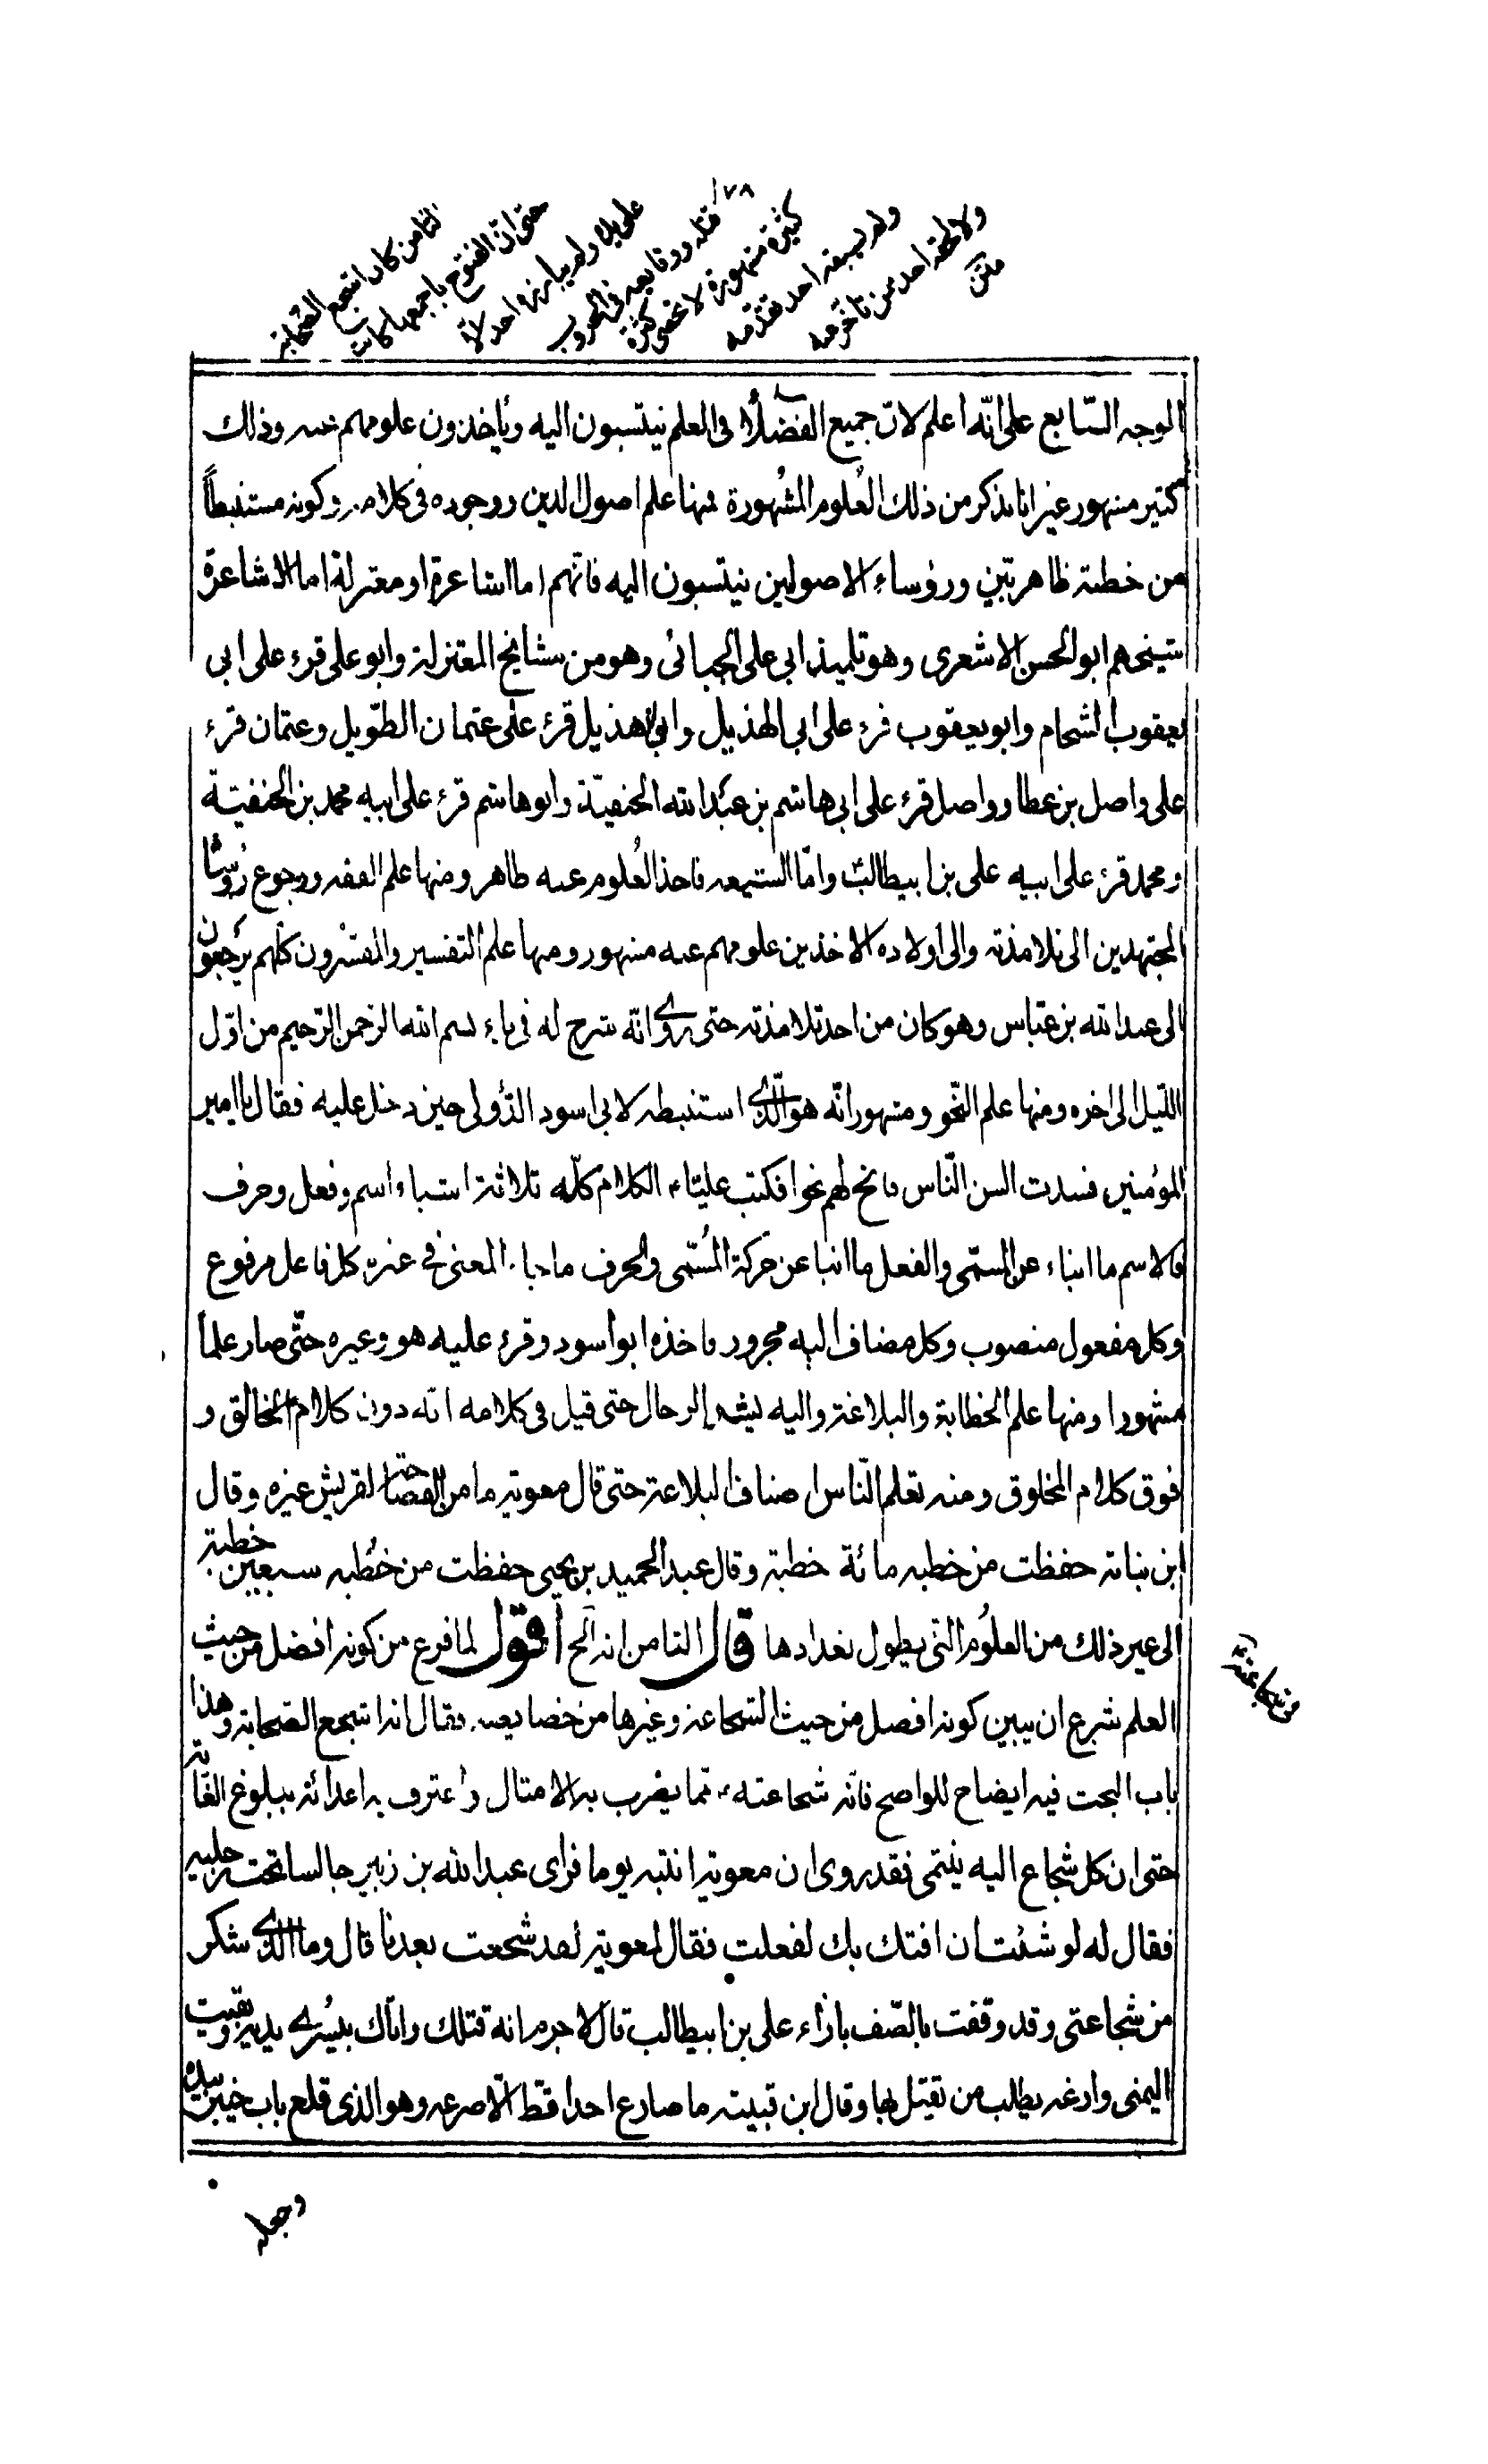 ١٧٨
الثامن كان اشجع الصحابة
حتى ان الفتوح باجمعها كانت
على يده ولم يبارز احد الا
قتله ووقايعه فى الحروب
كثيرة مشهورة لا تحصى كثرة
ولم يسبقه احد تقدمه
ولا لحقه احد ممن تاخر عنه
متن
الوجه السّابع على انّه اعلم لانّ جميع الفضلاء فى العلم ينتسبون اليه ويأخذون علومهم عنه وذلك
كثير مشهور غير انا نذكر من ذلك العُلوم المشُهورة فمنها علم اصول الدين ووجوده فى كلامه وكونه مستنبطاً
من خطبته ظاهر تبين ورؤساء الاصولين ينتسبون اليه فانّهم اما اشاعرة او معتزلة اما الاشاعرة
شيخهم ابو الحسن الاشعرى وهو تلميذ ابى على الجبائى وهو من مشايخ المعتزلة وابو على قرء على ابى
يعقوب الشحام وابو يعقوب قرء على ابى الهذيل وابى الهذيل قرئ على عثمان الطّويل وعثمان قرء
على واصل بن عطا وواصل قرء على ابى هاشم بن عبد الله الحنفيّة وابو هاشم قرء على ابيه محمد بن الحنفيّة
ومحمد قرء على ابيه على بن ابيطالب وامّا الشيعه فاخذ العُلوم عنه ظاهر ومنها علم الفقه ورجوع رؤسا
المجتهدين الى تلامذته والى اولاده الاخذين علومهم عنه مشهور ومنها علم التفسير والمفسّرون كلّهم يرجعون
الى عبد الله بن عبّاس وهو كان من احد تلامذته حتى روى انّه شرح له فى باء بسم الله الرّحمن الرّحيم من اوّل
اللّيل الى اخره ومنها علم النّحو ومشهور انّه هو الّذى استنبطه لابى اسود الدّؤلى حين دخل عليه فقال يا امير
المؤمنين فسدت السن النّاس فانح لهم نحوا فكتب علىّ الكلام كلّه ثلاثة اشياء اسم وفعل وحرف
فالاسم ما انباء عن المسمّى والفعل ما انبا عن حركة المُسّمى والحرف ما جاء المعنى فى غيره كل فاعل مرفوع
وكل مفعول منصوب وكل مضاف اليه مجرور فاخذه ابو اسود وقرء عليه هو وغيره حتّى صار علماً
مشهورا ومنها علم الخطابة والبلاغة واليه يشد الرحال حتى قيل فى كلامه انّه دون كلام الخالق و
فوق كلام المخلوق ومنه تعلم النّاس اصناف البلاغة حتى قال معوية ما سن الفصاحة لقريش غيره وقال
ابن نباته حفظت من خطبه مائة خطبة وقال عبد الحميد بن يحيى حفظت من خُطبه سبعين خطبة
الى غير ذلك من العلوُم التى يطول تعدادها قال الثامن انه الخ اقول لما فرغ من كونه افضل من حيث
العلم شرع ان يبين كونه افضل من حيث الشجاعة وغيرها من خصايصه فقال انه اشجع الصّحابة وهذا
باب البحث فيه ايضاح للواضح فانّه شجاعته مما يضرب به الامثال واعترف به اعدائه ببلوغ الغاية
حتى ان كل شجاع اليه ينتمى فقد روى ان معوية انتبه يوما فراى عبد الله بن زبير جالسا تحت رجليه
فقال له لو شئت ان افتك بك لفعلت فقال لمعوية لقد شجعت بعدنا قال وما الذى تنكر
من شجاعتى وقد وقفت بالصّف بازاء على بن ابيطالب قال لا جرم انه قتلك واباك بيسُرى يديه وبقيت
اليمنى فارغه يطالب من يقتل بها وقال ابن قتيبه ما صارع احدا قط الّا صرعه وهو الذى قلع باب خيبر بيده
من شجاعته
وجعله